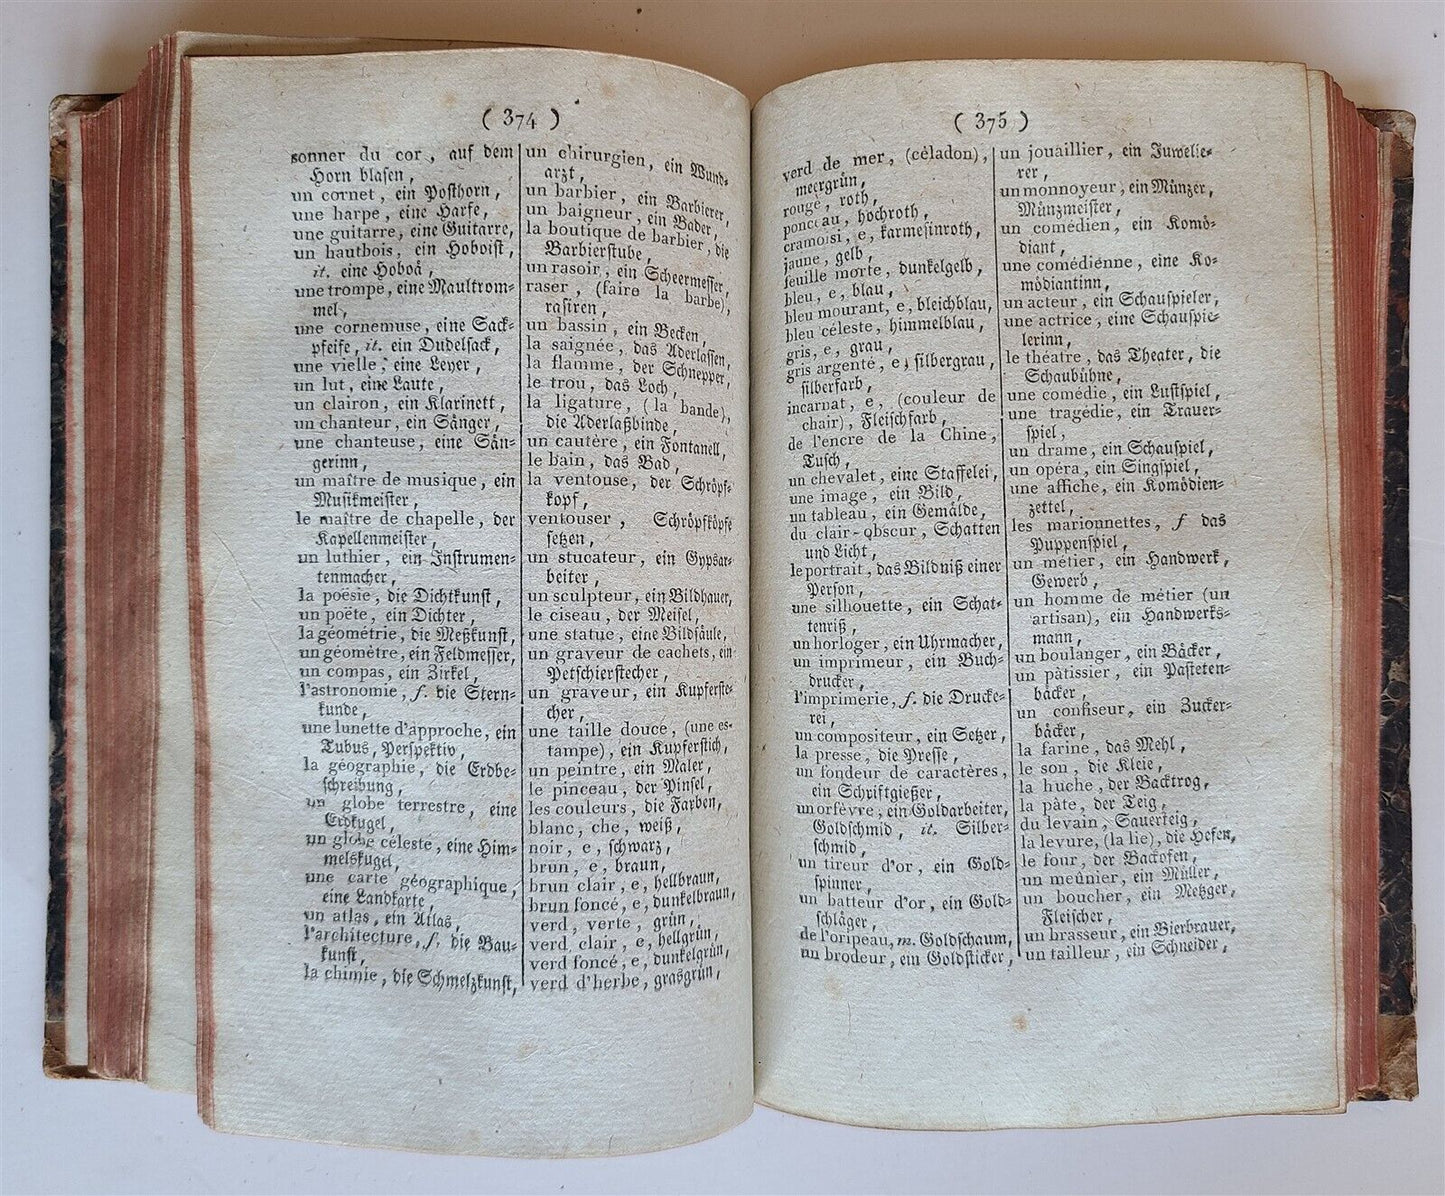 ( 374 )
sonner du cor, auf dem
Horn blasen,
un cornet, ein Posthorn,
une harpe, eine Harfe,
une guitarre, eine Guitarre,
un hautbois, ein Hoboist,
it. eine Hoboå,
une trompe, eine Maultrom-
mel,
une cornemuse, eine Sack-
pfeife, it. ein Dudelsack,
une vielle, eine Leyer,
un lut, eine Laute,
un clairon, ein Klarinett,
un chanteur, ein Sånger,
une chanteuse, eine Sån-
gerinn,
un maître de musique, ein
Musikmeister,
le maître de chapelle, der
Kapellenmeister,
un luthier, ein Instrumen-
tenmacher,
la poësie, die Dichtkunst,
un poëte, ein Dichter,
la géométrie, die Meßkunst,
un géométre, ein Feldmesser,
un compas, ein Zirkel,
l'astronomie, f. die Stern-
kunde,
une lunette d'approche, ein
Tubus, Perspektiv,
la géographie, die Erdbe-
schreibung,
un globe terrestre, eine
Erdkugel,
un globe céleste, eine Him-
melskugel,
une carte géographique,
eine Landkarte,
un atlas, ein Atlas,
l'architecture, f. die Bau-
kunst,
la chimie, die Schmelzkunst,
un chirurgien, ein Wund-
arzt,
un barbier, ein Barbierer,
un baigneur, ein Bader,
la boutique de barbier, die
Barbierstube,
un rasoir, ein Scheermesser,
raser, (faire la barbe),
rasiren,
un bassin, ein Becken,
la saignée, das Aderlassen,
la flamme, der Schnepper,
le trou, das Loch,
la ligature, (la bande),
die Aderlaßbinde,
un cautère, ein Fontanell,
le bain, das Bad,
la ventouse, der Schröpf-
kopf,
ventouser, Schröpfköpfe
setzen,
un stucateur, ein Gypsar-
beiter,
un sculpteur, ein Bildhauer,
le ciseau, der Meisel,
une statue, eine Bildsäule,
un graveur de cachets, ein
Petschierstecher,
un graveur, ein Kupferste-
cher,
une taille douce, (une es-
tampe), ein Kupferstich,
un peintre, ein Maler,
le pinceau, der Pinsel,
les couleurs, die Farben,
blanc, che, weiß,
noir, e, schwarz,
brun, e, braun,
brun clair, e, hellbraun,
brun foncé, e, dunkelbraun,
verd, verte, grün,
verd clair, e, hellgrün,
verd foncé, e, dunkelgrün,
verd d'herbe, grasgrün,
( 375 )
verd de mer, (céladon),
meergrün,
rouge, roth,
ponceau, hochroth,
cramoisi, e, karmesinroth,
jaune, gelb,
feuille morte, dunkelgelb,
bleu, e, blau,
bleu mourant, e, bleichblau,
bleu céleste, himmelblau,
gris, e, grau,
gris argenté, e, silbergrau,
silberfarb,
incarnat, e, (couleur de
chair), Fleischfarb,
de l'encre de la Chine,
Tusch,
un chevalet, eine Staffelei,
une image, ein Bild,
un tableau, ein Gemälde,
du clair-obscur, Schatten
und Licht,
le portrait, das Bildniß einer
Person,
une silhouette, ein Schat-
tenriß,
un horloger, ein Uhrmacher,
un imprimeur, ein Buch-
drucker,
l'imprimerie, f. die Drucke-
rei,
un compositeur, ein Setzer,
la presse, die Presse,
un fondeur de caractères,
ein Schriftgießer,
un orfèvre, ein Goldarbeiter,
Goldschmid, it. Silber-
schmid,
un tireur d'or, ein Gold-
spinner,
un batteur d'or, ein Gold-
schläger,
de l'oripeau, m. Goldschaum,
un brodeur, ein Goldsticker,
un jouaillier, ein Juwelie-
rer,
un monnoyeur, ein Münzer,
Münzmeister,
un comédien, ein Komö-
diant,
une comédienne, eine Ko-
mödiantinn,
un acteur, ein Schauspieler,
une actrice, eine Schauspie-
lerinn,
le théatre, das Theater, die
Schaubühne,
une comédie, ein Lustspiel,
une tragédie, ein Trauer-
spiel,
un drame, ein Schauspiel,
un opéra, ein Singspiel,
une affiche, ein Komödien-
zettel,
les marionnettes, f das
Puppenspiel,
un métier, ein Handwerk,
Gewerb,
un homme de métier (un
artisan), ein Handwerks-
mann,
un boulanger, ein Bäcker,
un pâtissier, ein Pasteten-
bäcker,
un confiseur, ein Zucker-
bäcker,
la farine, das Mehl,
le son, die Kleie,
la huche, der Backtrog,
la pâte, der Teig,
du levain, Sauerteig,
la levure, (la lie), die Hefen,
le four, der Backofen,
un meûnier, ein Müller,
un boucher, ein Metzger,
Fleischer,
un brasseur, ein Bierbrauer,
un tailleur, ein Schneider,